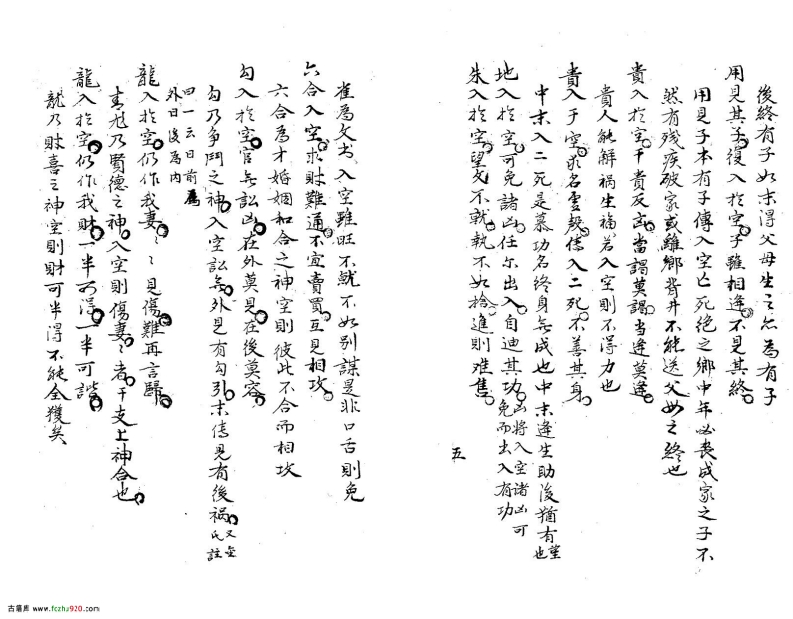 後終有子如末得父母生之亦為有子
用見其子復入於空子雖相逢不見其終
用見子本有子傳入空亡死絕之鄉中年必喪成家之子不
然有殘疾破家或離鄉背井不能送父母之終也
貴入於空干貴反凶當謁莫謁當逢莫逢
貴人能解禍生福若入空則不得力也
貴入于空求名虛發傳入二死不善其身
中末入二死是慕功名終身無成也中末逢生助後猶有望也
地入於空可免諸凶任尔出入自迪其功凶將入空諸凶可免而出入有功
朱入於空望文不就執不如捨進則难售
五
雀為文书入空雖旺不就不如别謀是非口舌則免
六合入空求財難通不宜賣買互見相攻
六合為才婚姻和合之神空則彼此不合而相攻
勾入於空官無訟凶在外莫見在後莫容
勾乃争鬥之神入空訟無外見有勾引末傳見有後禍又無氏註
四一云日前為外日後為内
龍入於空仍作我妻妻見傷難再言歸
青龙乃賢德之神入空則傷妻妻者干支上神合也
龍入於空仍作我財一半可得一半可諧
龍乃財喜之神空則財可半得不能全獲矣
古籍库 www.fczhu920.com